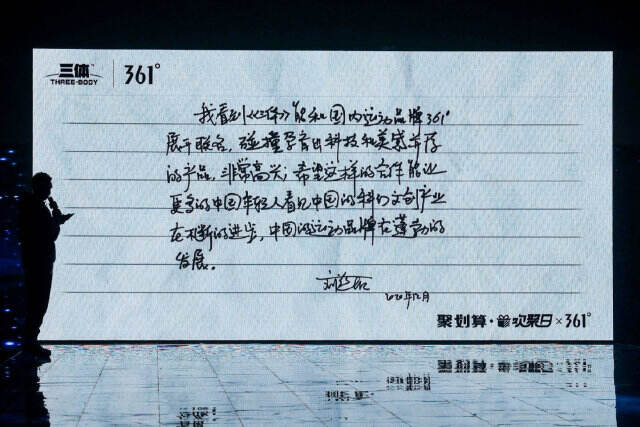 三体
THREE-BODY
361°
我看到《三体》能和国内运动品牌361°
展开联名，碰撞孕育出科技和美感并存
的产品，非常高兴，希望这样的合作能让
更多的中国年轻人看见中国的科幻文创产业
在不断的进步，中国的运动品牌在蓬勃的
发展。
刘慈欣
2020年12月
聚划算·欢聚日×361°